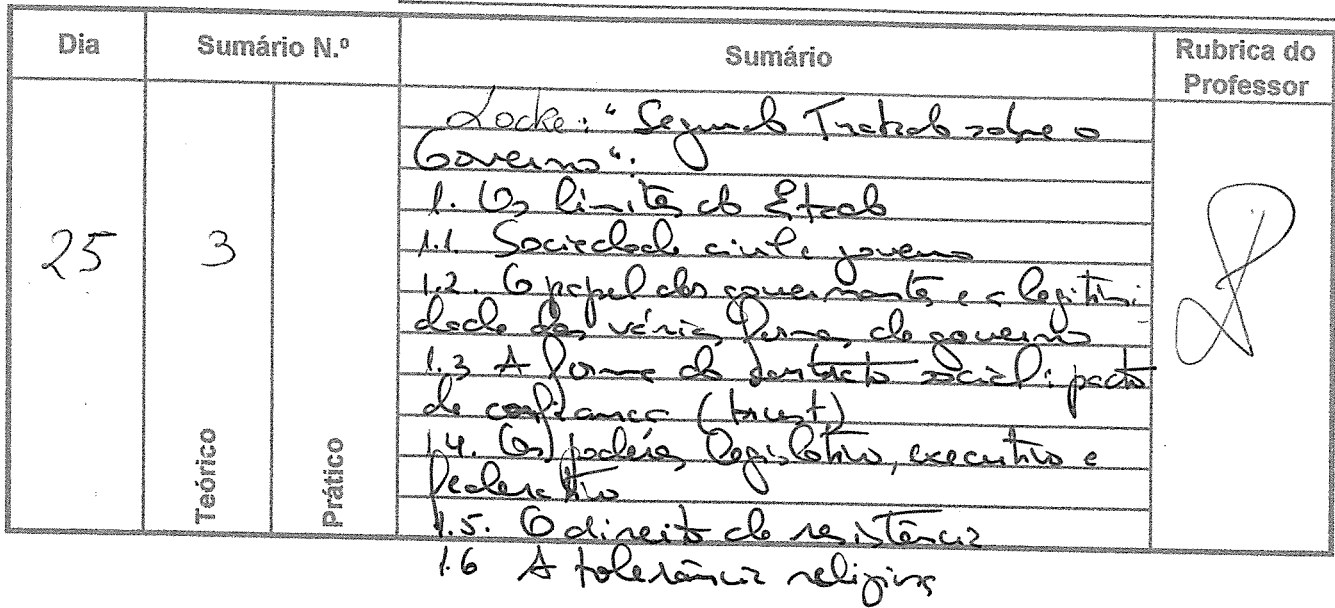 Dia
Sumário N.º
Sumário
Rubrica do
Professor
25
3
Teórico
Prático
Locke: "Segundo Tratado sobre o
Governo":
1. Os limites do Estado
1.1 Sociedade civil e governo
1.2. O papel dos governantes e a legitimi-
dade das várias formas de governo
1.3 A forma do contrato social: pacto
de confiança (trust)
1.4. Os poderes legislativo, executivo e
federativo
1.5. O direito de resistência
1.6 A tolerância religiosa